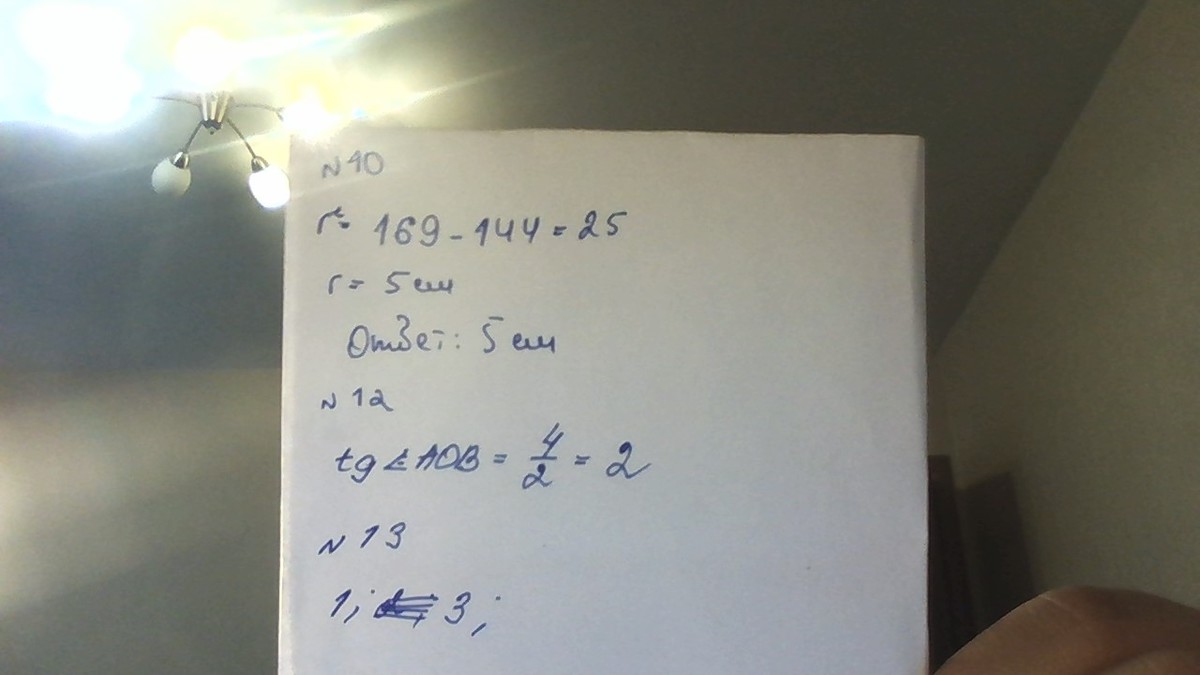 N 10
r² = 169 - 144 = 25
r = 5 см
Ответ: 5 см
N 12
tg ∠AOB = 4/2 = 2
N 13
1; 3;